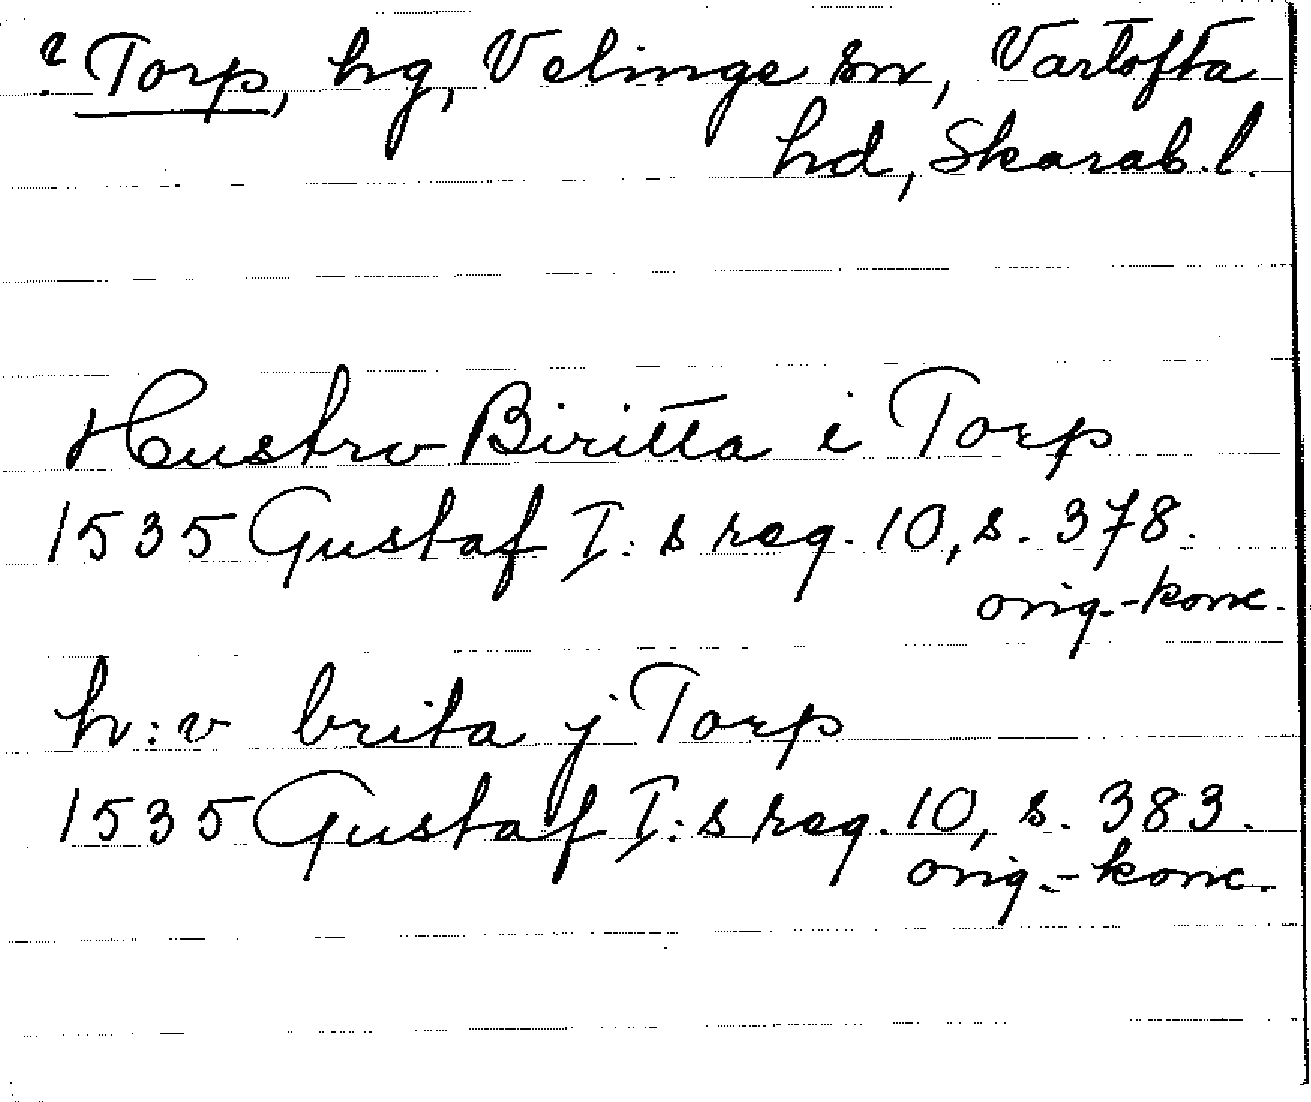 ? Torp, hg, Velinge sn, Vartofta
hd, Skarab. l.
Hustro Biritta i Torp
1535 Gustaf I:s reg. 10, s. 378.
orig.-konc.
h:v brita j Torp
1535 Gustaf I:s reg. 10, s. 383.
orig.-konc.